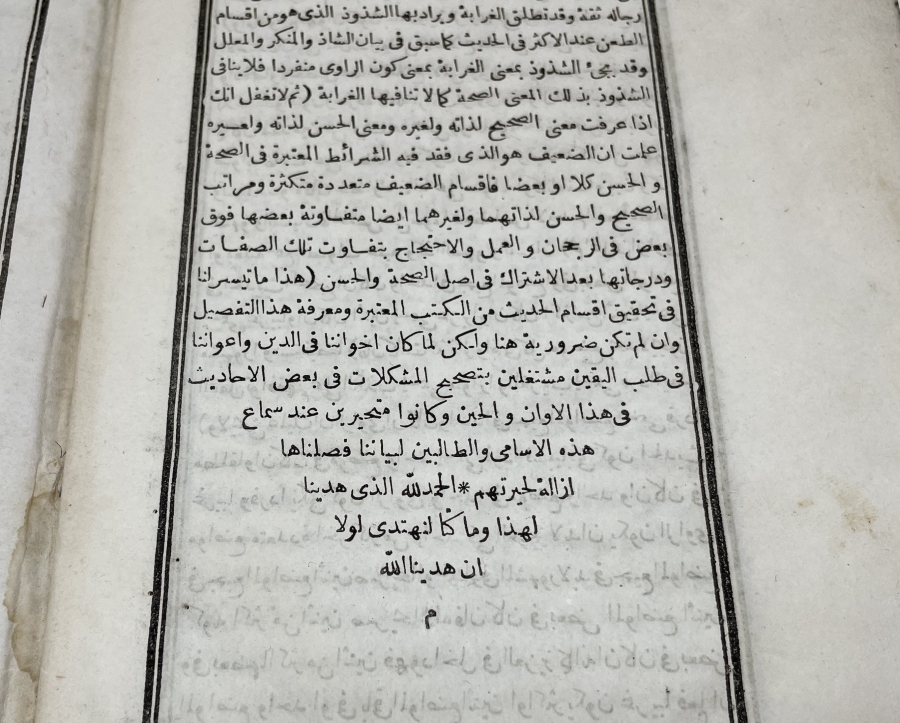 رجاله ثقة وقد تطلق الغرابة ويراد بها الشذوذ الذى هو من اقسام
الطعن عند الاكثر فى الحديث كما سبق فى بيان الشاذ والمنكر والمعلل
وقد يجئ الشذوذ بمعنى الغرابة بمعنى كون الراوى منفردا فلا ينافى
الشذوذ بذلك المعنى الصحة كما لا تنافيها الغرابة (ثم لا تغفل انك
اذا عرفت معنى الصحيح لذاته ولغيره ومعنى الحسن لذاته ولغيره
علمت ان الضعيف هو الذى فقد فيه الشرائط المعتبرة فى الصحة
و الحسن كلا او بعضا فاقسام الضعيف متعددة متكثرة ومراتب
الصحيح والحسن لذاتهما ولغيرهما ايضا متفاوتة بعضها فوق
بعض فى الرجحان و العمل والاحتجاج بتفاوت تلك الصفات
ودرجاتها بعد الاشتراك فى اصل الصحة والحسن (هذا ما تيسر لنا
فى تحقيق اقسام الحديث من الكتب المعتبرة ومعرفة هذا التفصيل
وان لم تكن ضرورية هنا ولكن لما كان اخواننا فى الدين واعواننا
فى طلب اليقين مشتغلين بتصحيح المشكلات فى بعض الاحاديث
فى هذا الاوان و الحين وكانوا متحيرين عند سماع
هذه الاسامى والطالبين لبياننا فصلناها
ازالة لحيرتهم * الحمد لله الذى هدينا
لهذا وما كنا لنهتدى لولا
ان هدينا الله
م